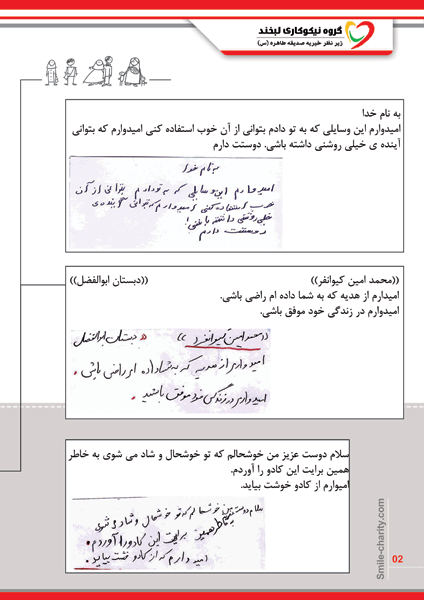 گروه نیکوکاری لبخند
زیر نظر خیریه صدیقه طاهره (س)
به نام خدا
امیدوارم این وسایلی که به تو دادم بتوانی از آن خوب استفاده کنی امیدوارم که بتوانی
آینده ی خیلی روشنی داشته باشی. دوستت دارم
به نام خدا
امیدوارم این وسایلی که به تو دارم بتوانی از آن
خوب استفاده کنی امیدوارم که بتوانی آینده ی
خیلی روشنی داشته باشی!
دوستت دارم
((محمد امین کیوانفر)) ((دبستان ابوالفضل))
امیدارم از هدیه که به شما داده ام راضی باشی.
امیدوارم در زندگی خود موفق باشی.
((محمد امین کیوانفر)) دبستان ابوالفضل
امیدوارم از هدیه که به شما داده ام راضی باشی.
امیدوارم در زندگی خود موفق باشید.
سلام دوست عزیز من خوشحالم که تو خوشحال و شاد می شوی به خاطر
همین برایت این کادو را آوردم.
امیوارم از کادو خوشت بیاید.
سلام دوست من خوشحالم که تو خوشحال و شاد می شوی
به خاطر همین برایت این کادو را آوردم.
امیدوارم که از کادو خشت بیاید.
Smile-charity.com
02